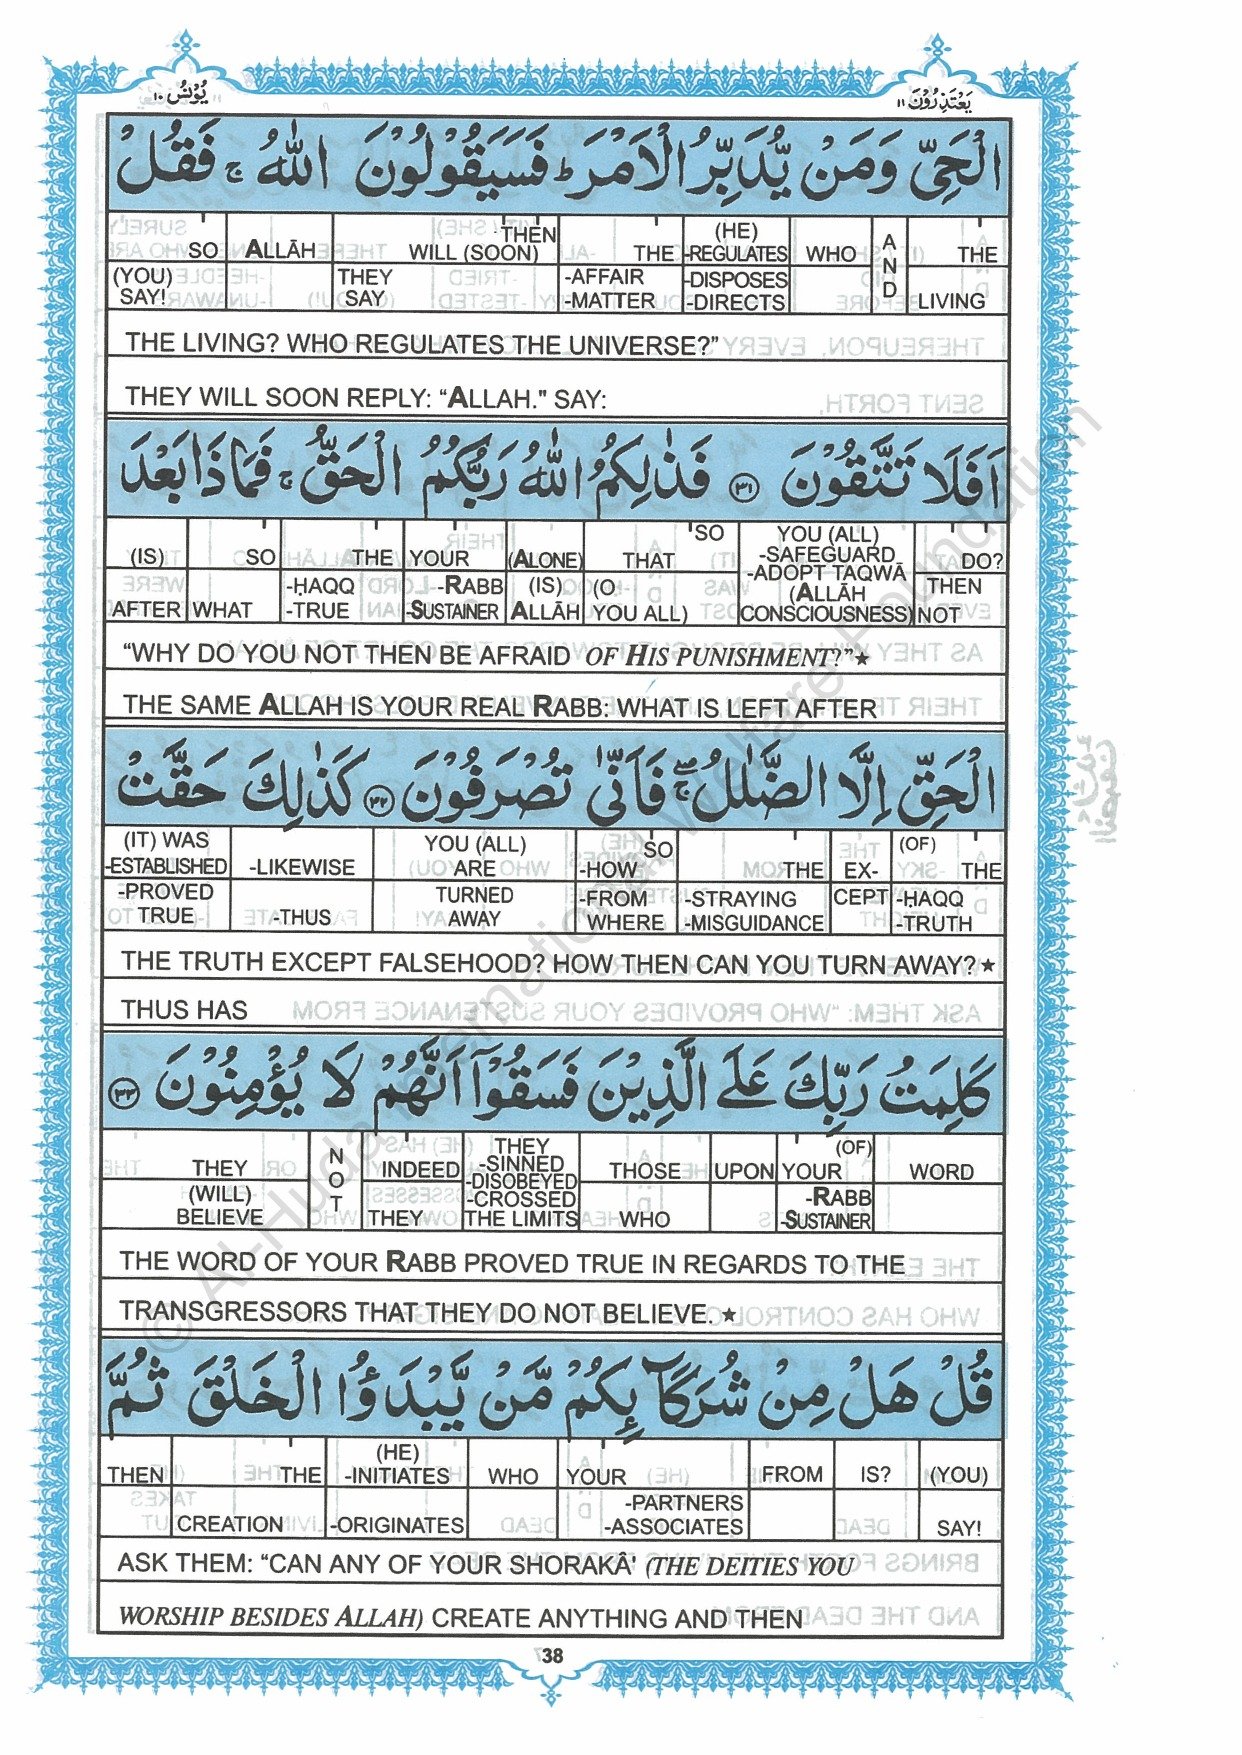 يُونُس ١٠
يَعْتَذِرُوْنَ ١١
الْحَيِّ وَمَنْ يُّدَبِّرُ الْاَمْرَ ؕ فَسَيَقُوْلُوْنَ اللّٰهُ ۚ فَقُلْ
SO ALLĀH THEN WILL (SOON) THE (HE) -REGULATES WHO AND THE
(YOU) SAY! THEY SAY -AFFAIR -MATTER -DISPOSES -DIRECTS LIVING
THE LIVING? WHO REGULATES THE UNIVERSE?”
THEY WILL SOON REPLY: “ALLAH." SAY:
اَفَلَا تَتَّقُوْنَ ﴿٣١﴾ فَذٰلِكُمُ اللّٰهُ رَبُّكُمُ الْحَقُّ ۚ فَمَاذَا بَعْدَ
(IS) SO THE YOUR (ALONE) THAT SO YOU (ALL) -SAFEGUARD -ADOPT TAQWĀ DO?
AFTER WHAT -ḤAQQ -TRUE -RABB -SUSTAINER (IS) ALLĀH (O YOU ALL) (ALLĀH CONSCIOUSNESS) THEN NOT
“WHY DO YOU NOT THEN BE AFRAID OF HIS PUNISHMENT?”★
THE SAME ALLAH IS YOUR REAL RABB: WHAT IS LEFT AFTER
الْحَقِّ اِلَّا الضَّلٰلُ ۚۖ فَاَنّٰى تُصْرَفُوْنَ ﴿٣٢﴾ كَذٰلِكَ حَقَّتْ
(IT) WAS -ESTABLISHED -LIKEWISE YOU (ALL) ARE SO -HOW THE EX- (OF) THE
-PROVED TRUE -THUS TURNED AWAY -FROM WHERE -STRAYING -MISGUIDANCE CEPT -ḤAQQ -TRUTH
THE TRUTH EXCEPT FALSEHOOD? HOW THEN CAN YOU TURN AWAY?★
THUS HAS
كَلِمَتُ رَبِّكَ عَلَى الَّذِيْنَ فَسَقُوْۤا اَنَّهُمْ لَا يُؤْمِنُوْنَ ﴿٣٣﴾
THEY NOT INDEED THEY -SINNED -DISOBEYED THOSE UPON (OF) YOUR WORD
(WILL) BELIEVE THEY -CROSSED THE LIMITS WHO -RABB -SUSTAINER
THE WORD OF YOUR RABB PROVED TRUE IN REGARDS TO THE
TRANSGRESSORS THAT THEY DO NOT BELIEVE.★
قُلْ هَلْ مِنْ شُرَكَآىِٕكُمْ مَّنْ يَّبْدَؤُا الْخَلْقَ ثُمَّ
THEN THE (HE) -INITIATES WHO YOUR FROM IS? (YOU)
CREATION -ORIGINATES -PARTNERS -ASSOCIATES SAY!
ASK THEM: “CAN ANY OF YOUR SHORAKÂ' (THE DEITIES YOU
WORSHIP BESIDES ALLAH) CREATE ANYTHING AND THEN
38
© Al-Huda International Welfare Foundation